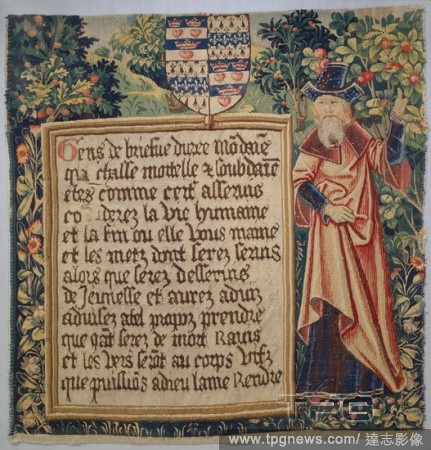 Gens de briefue duree mōdaīe
qui chasse mortelle & soubdaīe
etes comme cerf asseruis
co siderez la vie humaine
et la fin ou elle vous maine
et les metz dont serez seruis
alors que serez desseruis
de Jeunesse et aurez aduiz
aduisez a tel propoz prendre
que quāt serez de mort Rauis
et les vers serōt au corps vifz
que puissiōs a dieu lame Rendre
TPG
www.tpgnews.com/ 達志影像